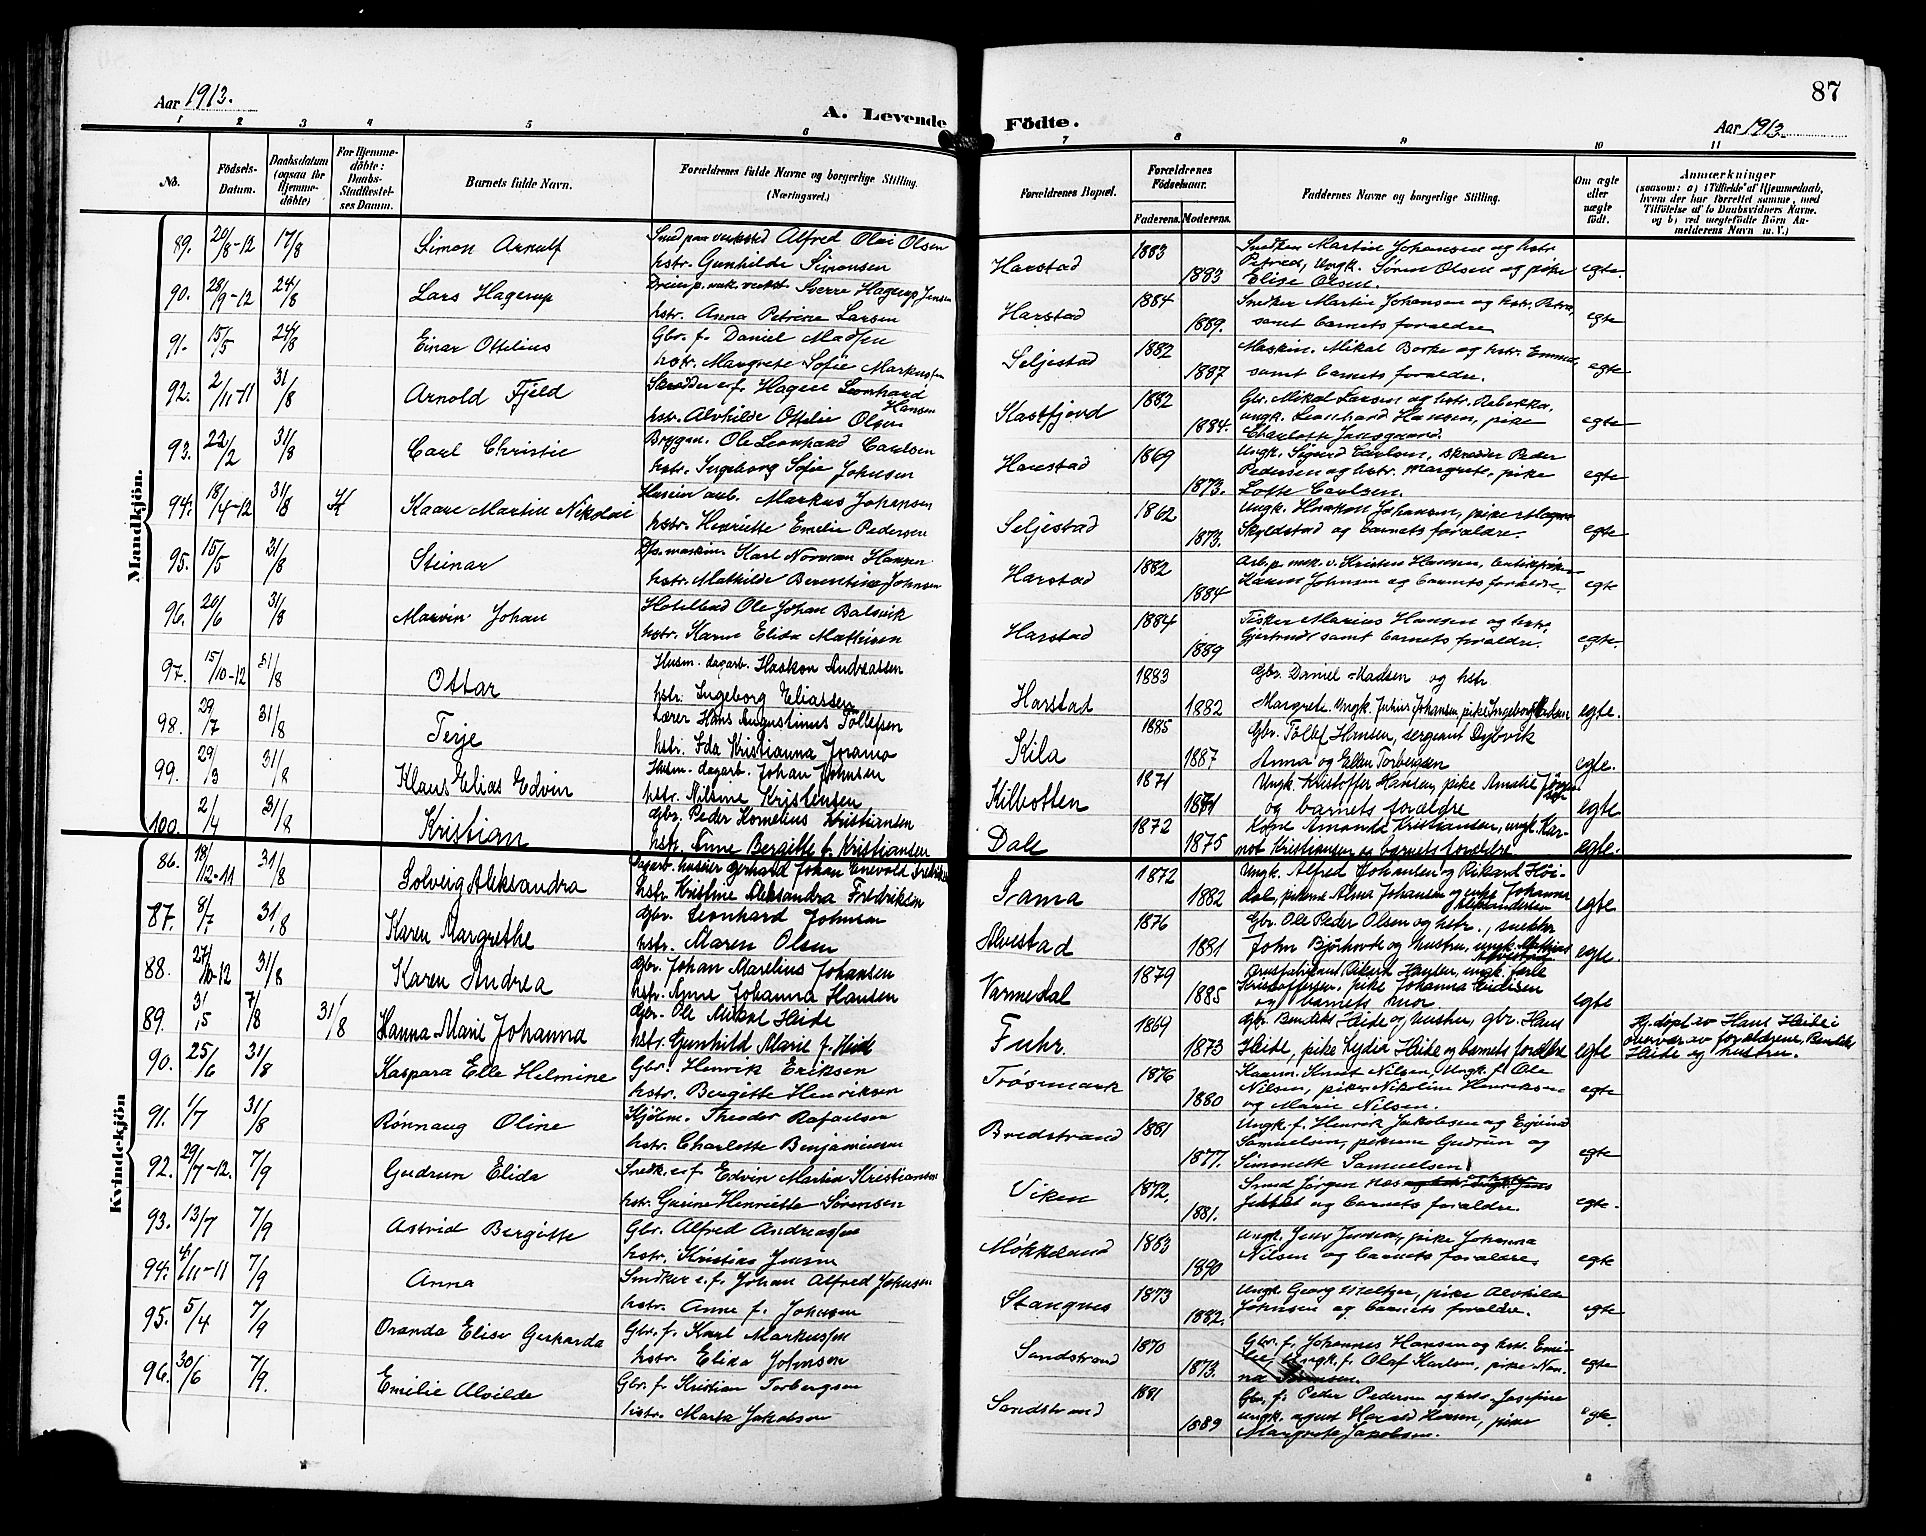 87
Aar 1913.
A. Levende Födte.
Aar 1913.
1 2 3 4 5 6 7 8 9 10 11
No.
Födsels-
Datum.
Daabsdatum
(ogsaa for
Hjemme-
döbte)
For Hjemme-
döbte:
Daabs-
Stadfæstel-
ses Datum.
Barnets fulde Navn.
Forældrenes fulde Navne og borgerlige Stilling.
(Næringsvei.)
Forældrenes Bopæl.
Forældrenes
Födselsaar.
Faderens. Moderens.
Faddernes Navne og borgerlige Stilling.
Om ægte
eller
uægte
födt.
Anmærkninger
(saasom: a) i Tilfælde af Hjemmedaab,
hvem der har forrettet samme, med
Tilföielse af to Daabsvidners Navne.
og b) ved uægtefödte Börn An-
melderens Navn m. V.)
Mandkjön.
89. 20/8-12 17/8 Simon Arnulf Smed paa verksted Alfred Olai Olsen
hstr. Gunhilde Simonsen
Harstad 1883 1883 Snedker Martin Johansen og hstr.
Petrea, Ungk. Sören Olsen og pike
Elise Olsen. egte.
90. 28/9-12 24/8 Lars Hagerup Sverre Hagerup Jensen
hstr. Anna Petrine Larsen
Harstad 1884 1889. Snedker Martin Johansen og hstr. Petrea,
samt barnets forældre egte
91. 15/5 24/8 Einar Ottelius Gbr. f. Daniel Madsen
hstr. Margrete Sofie Markussen
Seljestad 1882 1887 Maskin. Mikal Borke og hstr. Emma,
samt barnets forældre. egte
92. 2/11-11 31/8 Arnold Fjeld Skrædder e.f. Hagen Leonhard
Hansen
hstr. Alvhilde Ottelie Olsen
Kastfjord 1882 1884. Gbr. Mikal Larsen og hstr. Rebekka,
ungk. Leonhard Hansen, pike
Charlotte egte
93. 22/2 31/8 Carl Christie Bryggm. Ole Leonhard Carlsen
hstr. Ingeborg Sofie Johnsen
Harstad 1869 1873. Ungk. Sigurd Carlsen, skrædder Peder
Pedersen og hstr. Margrete, pike
Lotte Carlsen. egte
94. 18/4-12 31/8 Kaare Martin Nikolai Markus Johansen
hstr. Henriette Emelie Pedersen
Seljestad 1862 1873. Ungk. Haakon Johansen, pike Magna
Skjeldstad og barnets forældre. egte
95. 15/5 31/8 Steinar Karl Norman Hansen
hstr. Mathilde Berentine Johnsen
Harstad 1882 1884 Arb. p. mek. v. Kristen Hansen,
Johnsen og barnets forældre. egte
96. 20/6 31/8 Marvin Johan Ole Johan Balsvik
hstr. Karen Elida Mathisen
Harstad 1884 1889 Fisker Marius Hansen og hstr.
Gjertrudt samt barnets forældre. egte.
97. 15/10-12 31/8 Ottar Husm. dagarb. Haakon Andreassen
hstr. Ingeborg Eliassen
Harstad 1883 1882 Gbr. Daniel Madsen og hstr
Margrete. Ungk. Julius Johansen pike Ingeborg Madsen egte.
98. 29/7 31/8 Terje Lærer Hans Augustinus Tollefsen
hstr. Ida Kristianna Joramo
Kila 1885 1887 Gbr. Tollef Hansen, sergeant Dybvik
Anna og Ellen Torbergsen egte.
99. 29/3 31/8 Klaus Elias Edvin Husm. dagarb. Johan Johnsen
hstr. Nilsine Kristensen
Kilbotten 1871 1871 Ungk. Kristoffer Hansen, pike Amalie
og barnets forældre egte
100. 2/4 31/8 Kristian Gbr. Peder Kornelius Kristiansen
hstr. Anne Bergitte f. Kristiansen
Dale 1872 1875 Kone Amanda Kristiansen, ungk. Kar-
not Kristiansen og barnets forældre egte.
Kvindekjön
86. 18/12-11 31/8 Solveig Aleksandra Gerhard Johan Enevold Fredriksen
hstr. Kristine Aleksandra Fredriksen
Sama 1872 1882 Ungk. Alfred Johansen og Rikard Höi-
dal, pikerne Alma Johansen og enke Johanna
Aleksandersen egte
87. 8/7. 31/8 Karen Margrethe Gbr. Leonhard Johnsen
hstr. Maren Olsen
Alvestad 1876 1881 Gbr. Ole Peder Olsen og hstr., snekker
John og hustru, ungk. Mathias
Alvestad egte
88. 27/10-12 31/8 Karen Andrea Gbr. Johan Marelius Johansen
hstr. Anne Johanna Hansen
Varmedal 1879 1885 Brusfabrikant Rikard Hansen, ungk. Jarle
Kristoffersen, pike Johanna
og barnets mor egte
89. 3/5 7/8 31/8 Hanna Marie Johanna Gbr. Ole Mikal Heide
hstr. Gunhild Marie f. Heide
Fuhr. 1869 1873 Gbr. Bendiks Heide og hustru, gbr. Hans
Heide, pike Lydia Heide og barnets forældre egte Hj. døpt av Hans Heide i
overvær av forældrene, Bendiks
Heide og hustru.
90. 25/6 31/8 Kaspara Elle Helmine Gbr. Henrik Eriksen
hstr. Bergitte Henriksen
Trøsemark 1876 1880 Knut Nilsen, Ungk. f. Ole
Nilsen, piker Nikoline Henriksen
og Marie Nilsen. egte
91. 1/7 31/8 Rønnaug Oline Theodor Rafaelsen
hstr. Charlotte Benjaminsen
Bredstrand 1881 1877. Ungk. f. Henrik Jakobsen og Eyvind
Samuelsen, pikerne Gudrun og
Simonette Samuelsen egte
92. 29/7-12. 7/9 Gudrun Elida Snedk. e.f. Edvin Martin Kristiansen
hstr. Gurine Henriette Sørensen
Viken 1872. 1881. Smed Jørgen
og barnets forældre. egte.
93. 13/7 7/9 Astrid Bergitte Gbr. Alfred Andreassen
hstr. Kristine Jensen
Møkkeland 1883 1890 Ungk. Jens Jensen, pike Johanna
Nilsen og barnets forældre egte
94. 4/11-11 7/9 Anna Snedker e.f. Johan Alfred Johnsen
hstr. Anne f. Johnsen
Stangnes 1873 1882. Ungk. Georg Meltzer, pike Alvhilde
Johnsen og barnets forældre. egte
95. 5/4 7/9 Oranda Elise Gerharda Gbr. f. Karl Markussen
hstr. Elida Johnsen
Sandstrand 1870 1873. Gbr. f. Johannes Hansen og hstr. Emi-
lie, Ungk. f. Olaf Karlsen, pike Nan-
na egte
96. 30/6 7/9. Emilie Alvilde Gbr. f. Kristian Torbergsen
hstr. Marta Jakobsen
Sandstrand 1881 1889 Gbr. f. Peder Pedersen og hstr Josefine
ungk. August Harald Hansen, pike
Margrete Jakobsen. egte.